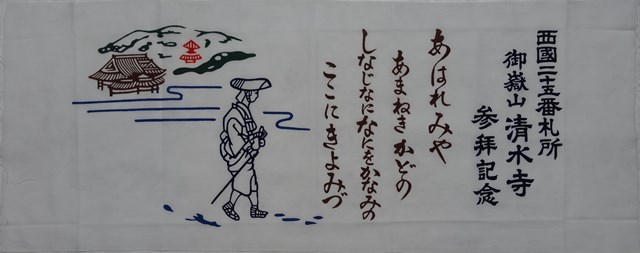 西國二十五番札所
御嶽山 清水寺
参拝記念
あはれみや
あまねきかどの
しなじなになにをかなみの
ここにきよみづ